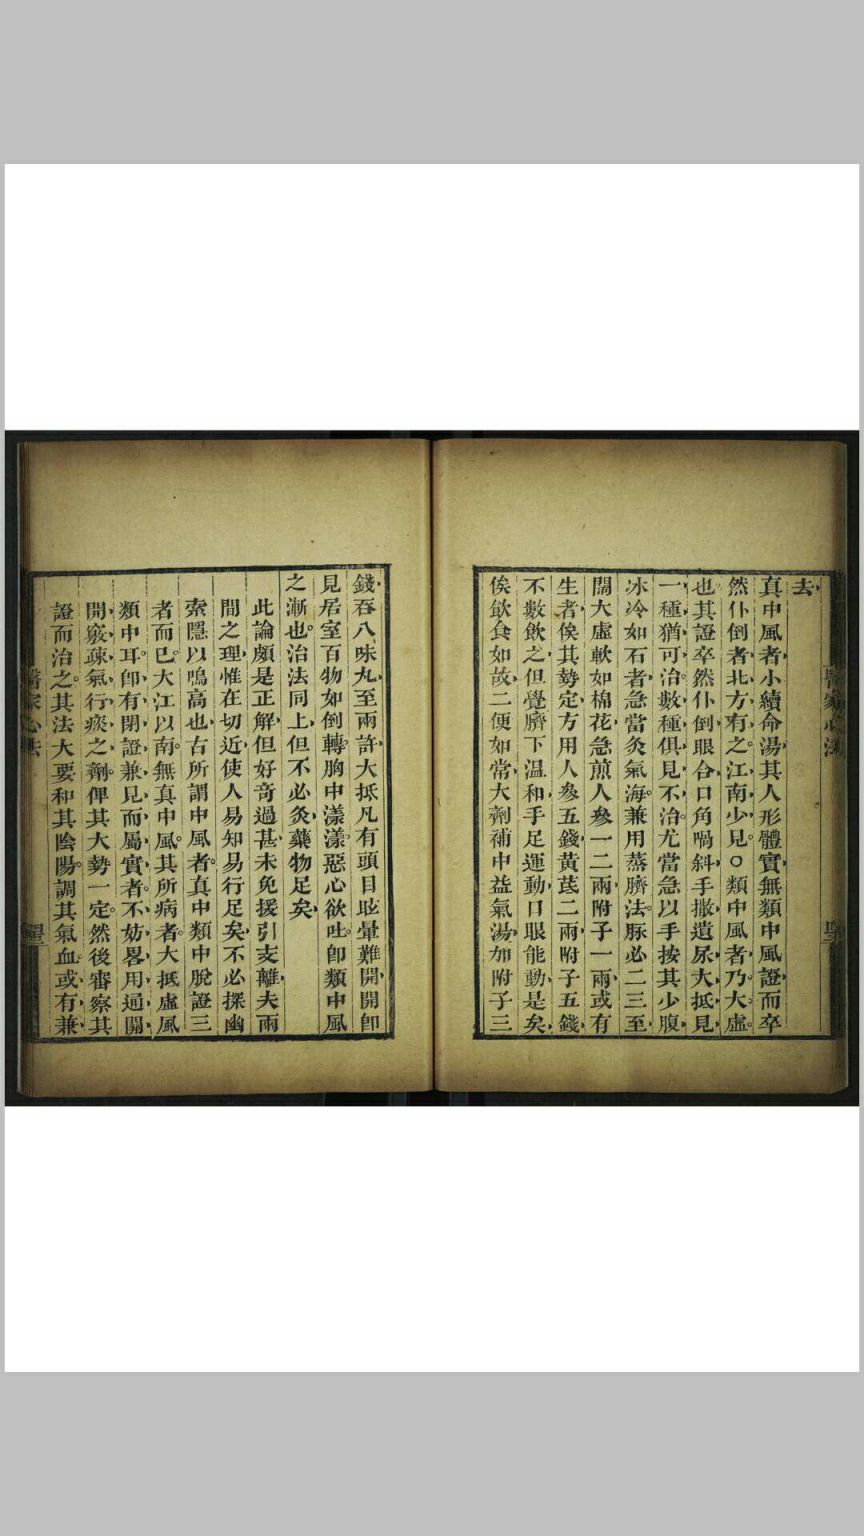 去
真中風者小續命湯其人形體實無類中風證而卒
然仆倒者北方有之江南少見○類中風者乃大虛
也其證卒然仆倒眼合口角喎斜手撒遺尿大抵見
一種猶可治數種俱見不治尤當急以手按其少腹
冰冷如石者急當灸氣海兼用蒸臍法脈必二三至
闊大虛軟如棉花急煎人參一二兩附子一兩或有
生者俟其勢定方用人參五錢黃芪二兩附子五錢
不數飲之但覺臍下溫和手足運動口眼能動是矣
俟飲食如故二便如常大劑補中益氣湯加附子三
錢吞八味丸至兩許大抵凡有頭目眩暈難開開即
見居室百物如倒轉胸中漾漾惡心欲吐即類中風
之漸也治法同上但不必灸藥物足矣
此論頗是正解但好奇過甚未免援引支離夫兩
間之理惟在切近使人易知易行足矣不必探幽
索隱以鳴高也古所謂中風者真中類中脫證三
者而已大江以南無真中風其所病者大抵虛風
類中耳即有閉證兼見而屬實者不妨畧用通關
開竅疎氣行痰之劑俾其大勢一定然後審察其
證而治之其法大要和其陰陽調其氣血或有兼
醫家心法